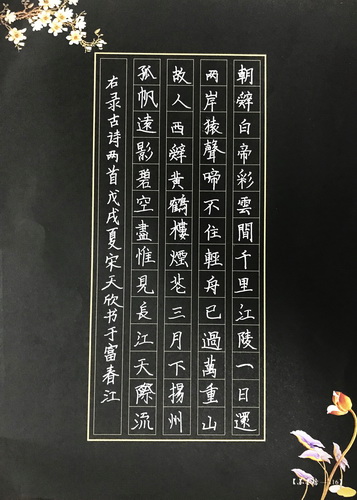 朝辤白帝彩雲間千里江陵一日還
兩岸猿聲啼不住輕舟已過萬重山
故人西辤黄鶴樓煙花三月下揚州
孤帆遠影碧空盡惟見長江天際流
右录古诗两首戊戌夏宋天欣书于富春江